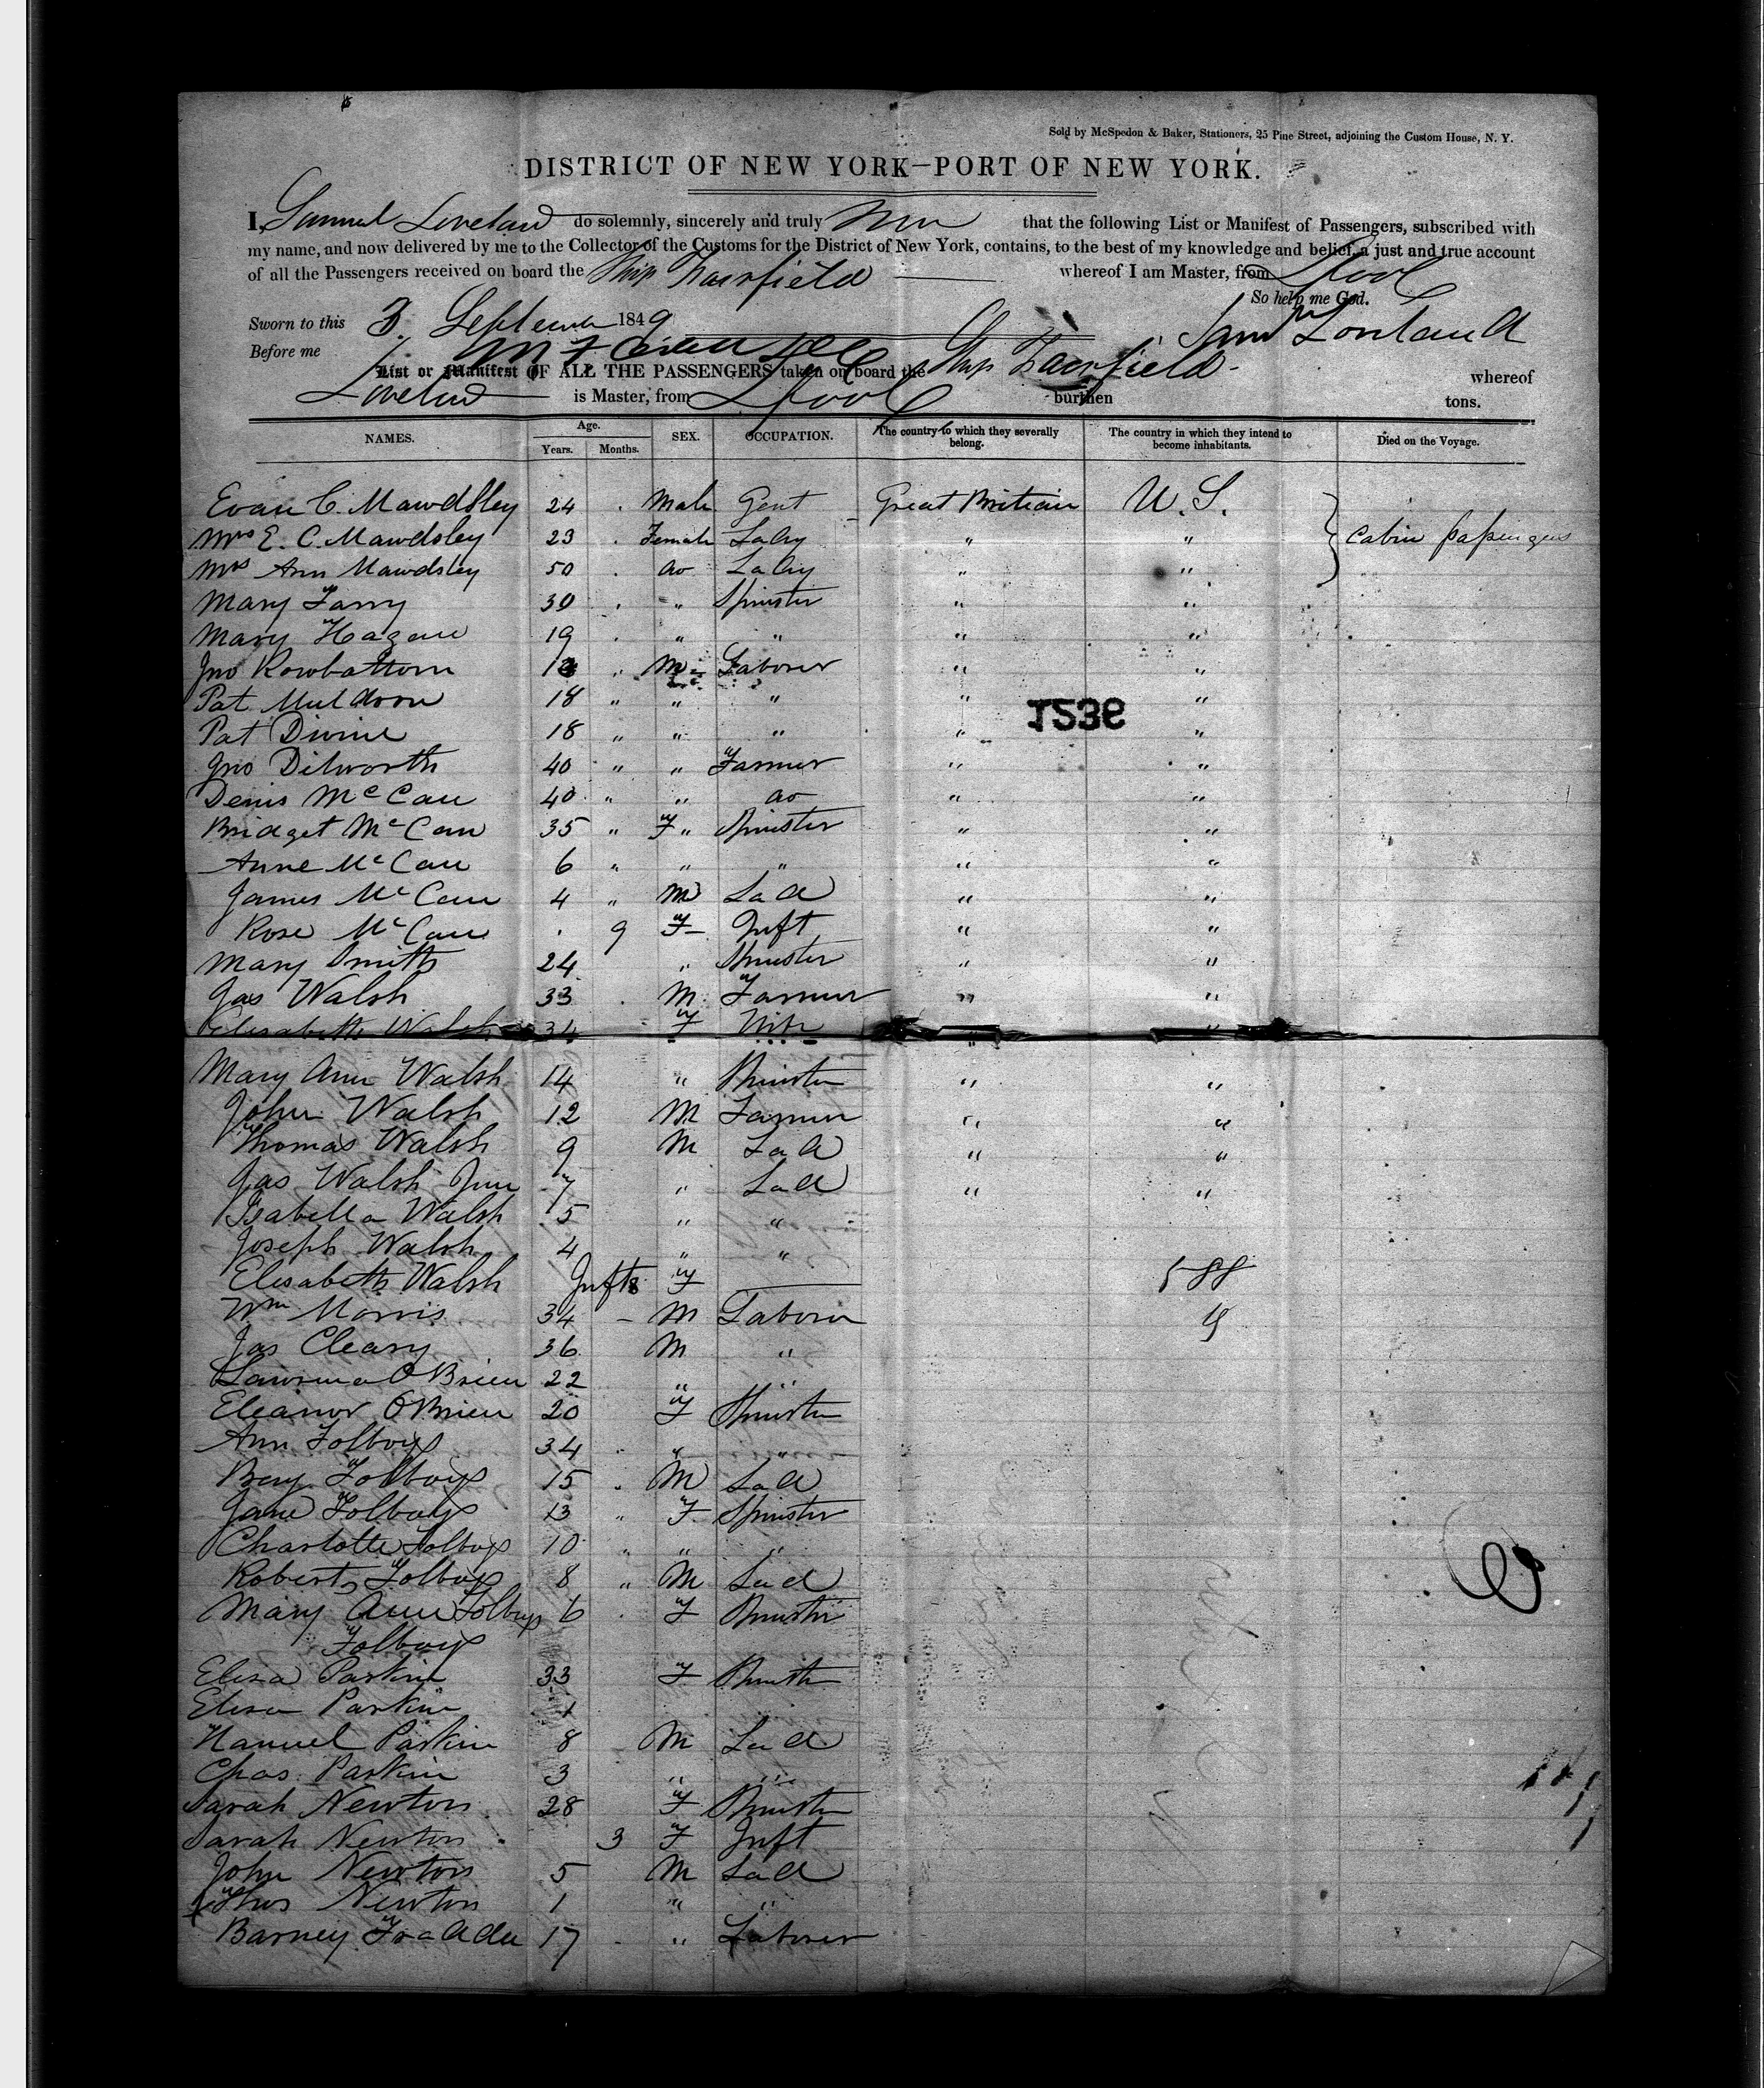 Sold by McSpedon & Baker, Stationers, 25 Pine Street, adjoining the Custom House, N. Y.
DISTRICT OF NEW YORK—PORT OF NEW YORK.
I, Samuel Loveland do solemnly, sincerely and truly that the following List or Manifest of Passengers, subscribed with
my name, and now delivered by me to the Collector of the Customs for the District of New York, contains, to the best of my knowledge and belief, a just and true account
of all the Passengers received on board the Ship Fairfield whereof I am Master, from Lpool
So help me God.
Sworn to this 3 September 1849 Saml Loveland
Before me
List or Manifest OF ALL THE PASSENGERS taken on board the Ship Fairfield whereof
Loveland is Master, from Lpool burthen tons.
NAMES. Age. Years. Months. SEX. OCCUPATION. The country to which they severally belong. The country in which they intend to become inhabitants. Died on the Voyage.
Evan C. Mawdsley 24 Male Gent Great Britian U. S.
Mrs E. C. Mawdsley 23 Female Lady " " Cabin passengers
Mrs Ann Mawdsley 50 do Lady " "
Mary Farry 30 " Spinster " "
Mary Hagan 19 " " " "
Jno Rowbattom M Laborer " "
Pat Muldoon 18 " " " " "
Pat Divine 18 " " " " "
1536
Jno Dilworth 40 " " Farmer " "
Denis McCan 40 " " do " "
Bridget McCan 35 " F " Spinster " "
Anne McCan 6 " " " " "
James McCan 4 " M Lad " "
Rose McCan 9 F Inft " "
Mary Smith 24 " Spinster " "
Jas Walsh 33 M Farmer " "
Elisabeth Walsh 34 F Wife " "
Mary Ann Walsh 14 " Spinster " "
John Walsh 12 M Farmer " "
Thomas Walsh 9 M Lad " "
Jas Walsh Jun 7 " Lad " "
Isabella Walsh 5 " "
Joseph Walsh 4 " "
Elisabeth Walsh Inft 8 F
588
Wm Morris 34 M Laborer
Jas Cleary 36 M "
Lawrence OBrien 22 " "
Eleanor OBrien 20 F Spinster
Ann Folboys 34 " "
Benj Folboys 15 M Lad
Jane Folboys 13 " F Spinster
Charlotte Folboys 10 " " "
Robert Folboys 8 " M Lad
Mary Ann Folboys 6 F Spinster
Folboys
Elisa Parkin 33 F Spinster
Elisa Parkin 1
Hanuel Parkin 8 M Lad
Chas. Parkin 3 " "
Sarah Newton 28 F Spinster
Sarah Newton 3 F Inft
John Newton 5 M Lad
Thos Newton 1 " "
Barney 17 " Laborer